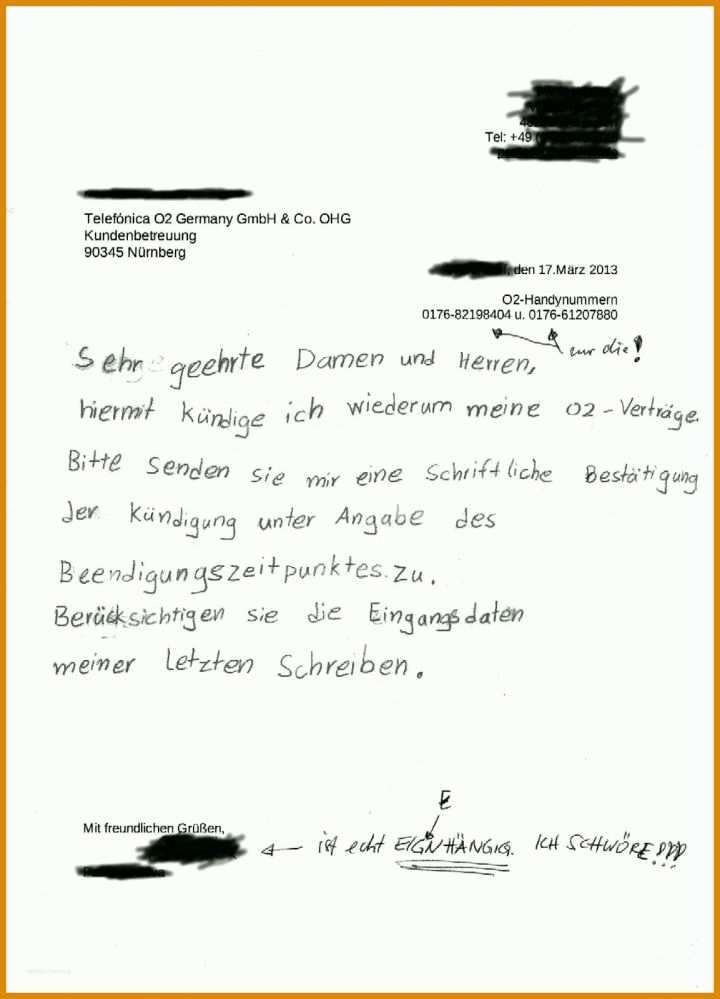 Tel: +49
Telefónica O2 Germany GmbH & Co. OHG
Kundenbetreuung
90345 Nürnberg
, den 17.März 2013
O2-Handynummern
0176-82198404 u. 0176-61207880
nur die!
Sehr geehrte Damen und Herren,
hiermit kündige ich wiederum meine O2-Verträge.
Bitte senden sie mir eine Schriftliche Bestätigung
der Kündigung unter Angabe des
Beendigungszeitpunktes zu.
Berücksichtigen sie die Eingangsdaten
meiner letzten Schreiben.
E
Mit freundlichen Grüßen,
ist echt EIGNHÄNGIG. ICH SCHWÖRE!!!